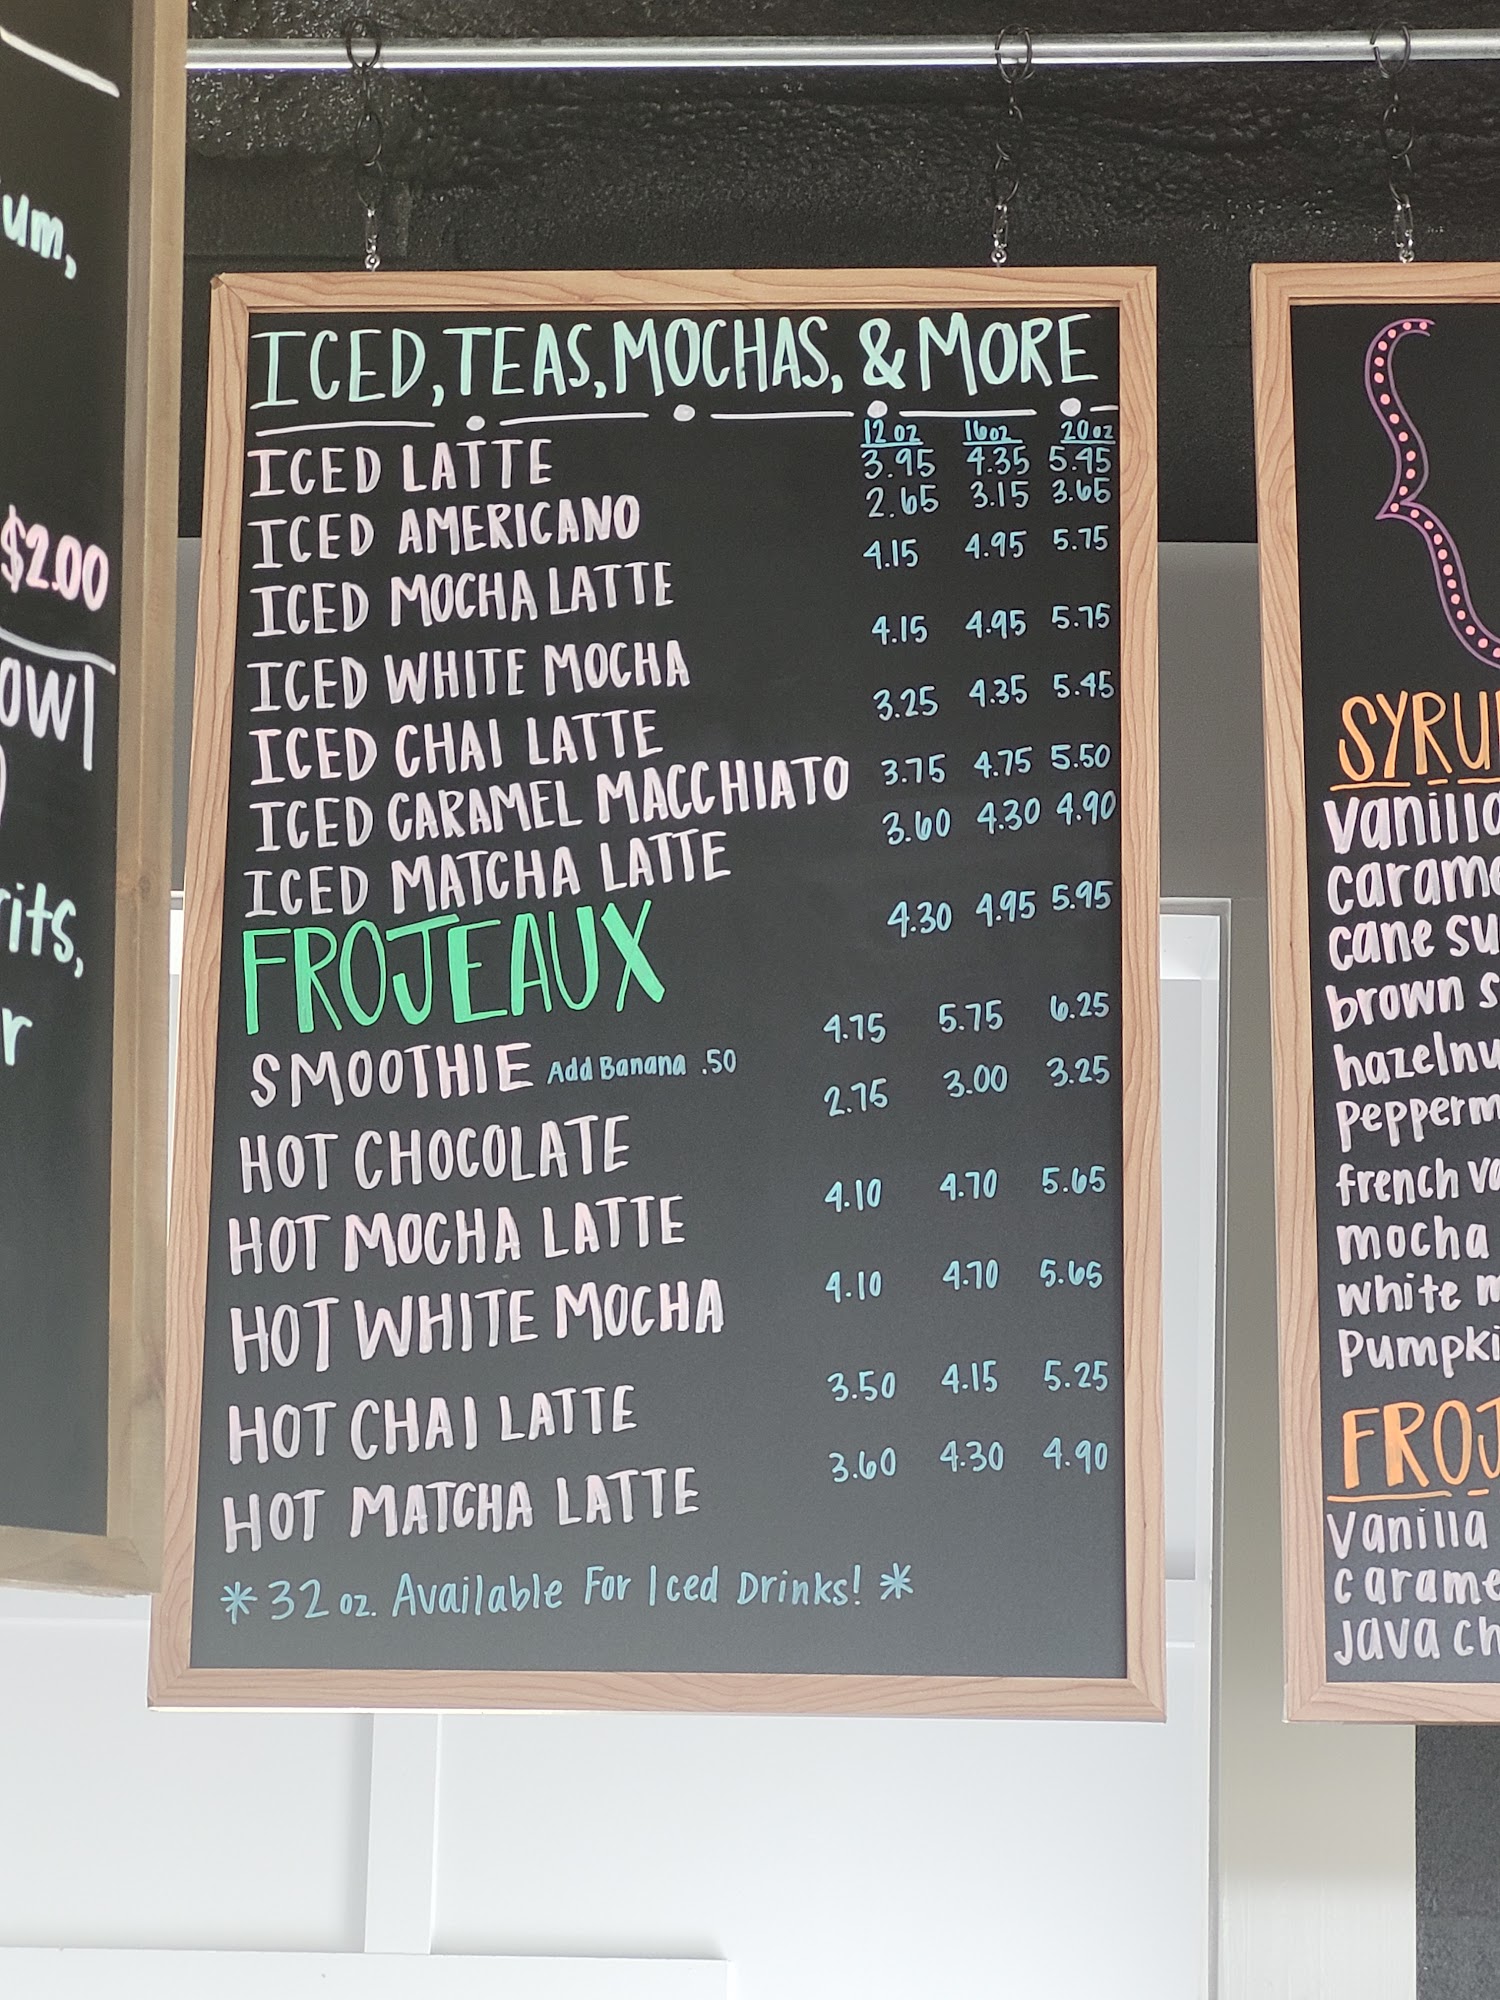 um,
$2.00
owl
)
rits,
r
ICED, TEAS, MOCHAS, & MORE
12 oz 16oz 20oz
ICED LATTE 3.95 4.35 5.45
ICED AMERICANO 2.65 3.15 3.65
ICED MOCHA LATTE 4.15 4.95 5.75
ICED WHITE MOCHA 4.15 4.95 5.75
ICED CHAI LATTE 3.25 4.35 5.45
ICED CARAMEL MACCHIATO 3.75 4.75 5.50
ICED MATCHA LATTE 3.60 4.30 4.90
FROJEAUX 4.30 4.95 5.95
SMOOTHIE Add Banana .50 4.75 5.75 6.25
HOT CHOCOLATE 2.75 3.00 3.25
HOT MOCHA LATTE 4.10 4.70 5.65
HOT WHITE MOCHA 4.10 4.70 5.65
HOT CHAI LATTE 3.50 4.15 5.25
HOT MATCHA LATTE 3.60 4.30 4.90
*32 oz. Available For Iced Drinks! *
SYRU
vanilla
carame
cane su
brown s
hazelnu
pepperm
french va
mocha
white m
pumpki
FROJ
vanilla
carame
java ch